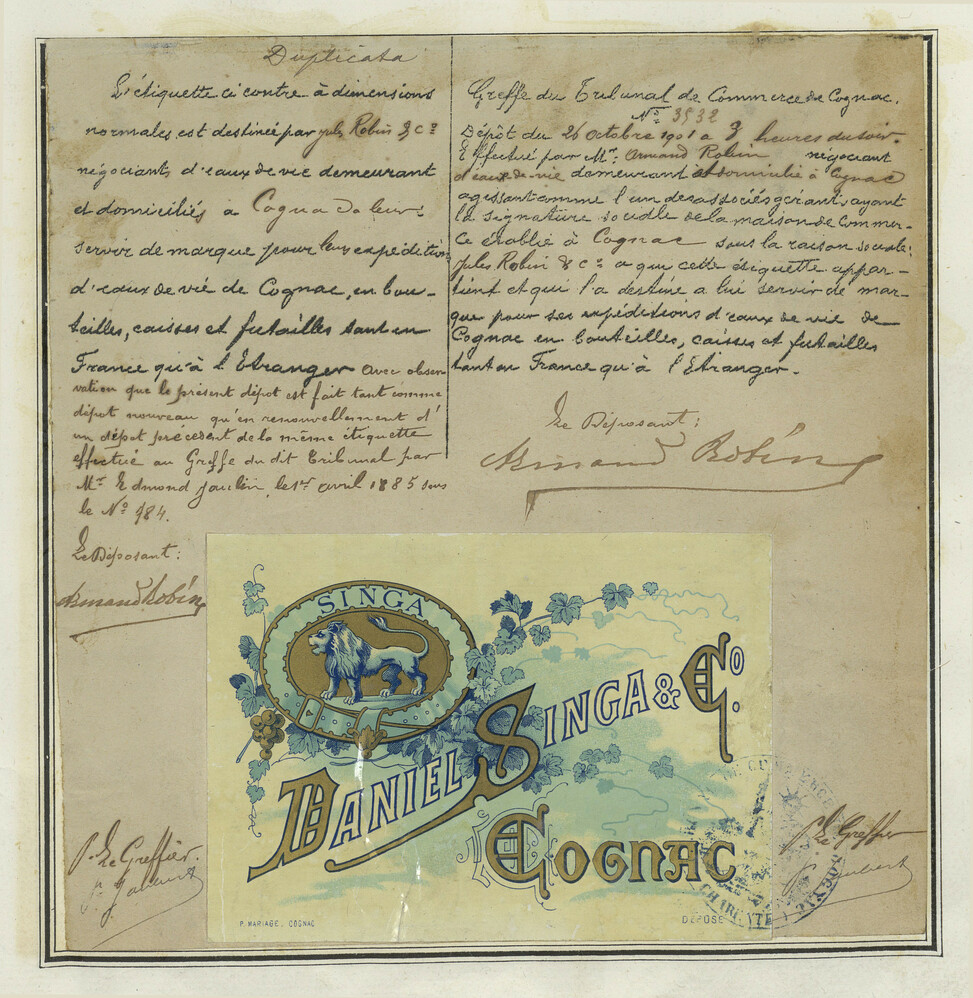 Duplicata
L'étiquette ci contre à dimensions
normales, est destinée par Jules Robin & Cie
négociants d'eaux de vie demeurant
et domiciliés à Cognac à leur
servir de marque pour leurs expéditions
d'eaux de vie de Cognac, en bou-
teilles, caisses et futailles tant en
France qu'à l'Etranger avec obser
vation que le présent dépôt est fait tant comme
dépôt nouveau qu'en renouvellement d'
un dépôt précédent de la même étiquette
effectué au Greffe du dit Tribunal par
Mr. Edmond Jaulin, le 1er avril 1885 sous
le No 984.
Le Déposant:
Armand Robin
P. Le Greffier.
Greffe du Tribunal de Commerce de Cognac.
No 3532
Dépôt du 26 Octobre 1901 à 3 heures du soir.
Effectué pour Mr. Armand Robin négociant
d'eaux-de-vie demeurant et domicilié à Cognac
agissant comme l'un des associés gérant, ayant
la signature sociale de la maison de Commer-
ce établie à Cognac sous la raison sociale:
Jules Robin & Cie a qui cette étiquette appar-
tient et qui l'a destine a lui servir de mar-
que pour ses expéditions d'eaux de vie de
Cognac en bouteilles, caisses et futailles
tant en France qu'à l'Etranger.
Le Déposant:
Armand Robin
SINGA
DANIEL SINGA & Co.
COGNAC
P. MARIAGE, COGNAC
DÉPOSÉ
P. Le Greffier
CHARENTE